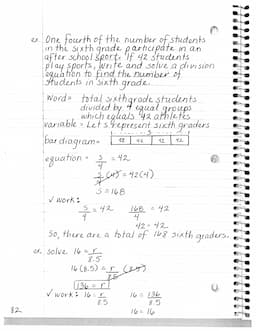 ex. One fourth of the number of students
in the sixth grade participate in an
after school sport. If 42 students
play sports, write and solve a division
equation to find the number of
students in sixth grade.
Words = total sixth grade students
divided by 4 equal groups
which equals 42 athletes
variable = Let s represent sixth graders
bar diagram =
42 42 42 42
equation = s/4 = 42
s/4 (4) = 42(4)
s = 168
✓ work:
s/4 = 42 168/4 = 42
42 = 42
So, there are a total of 168 sixth graders.
ex. solve 16 = r/8.5
16(8.5) = r/8.5 (8.5)
136 = r
✓ work: 16 = r/8.5 16 = 136/8.5
16 = 16
82